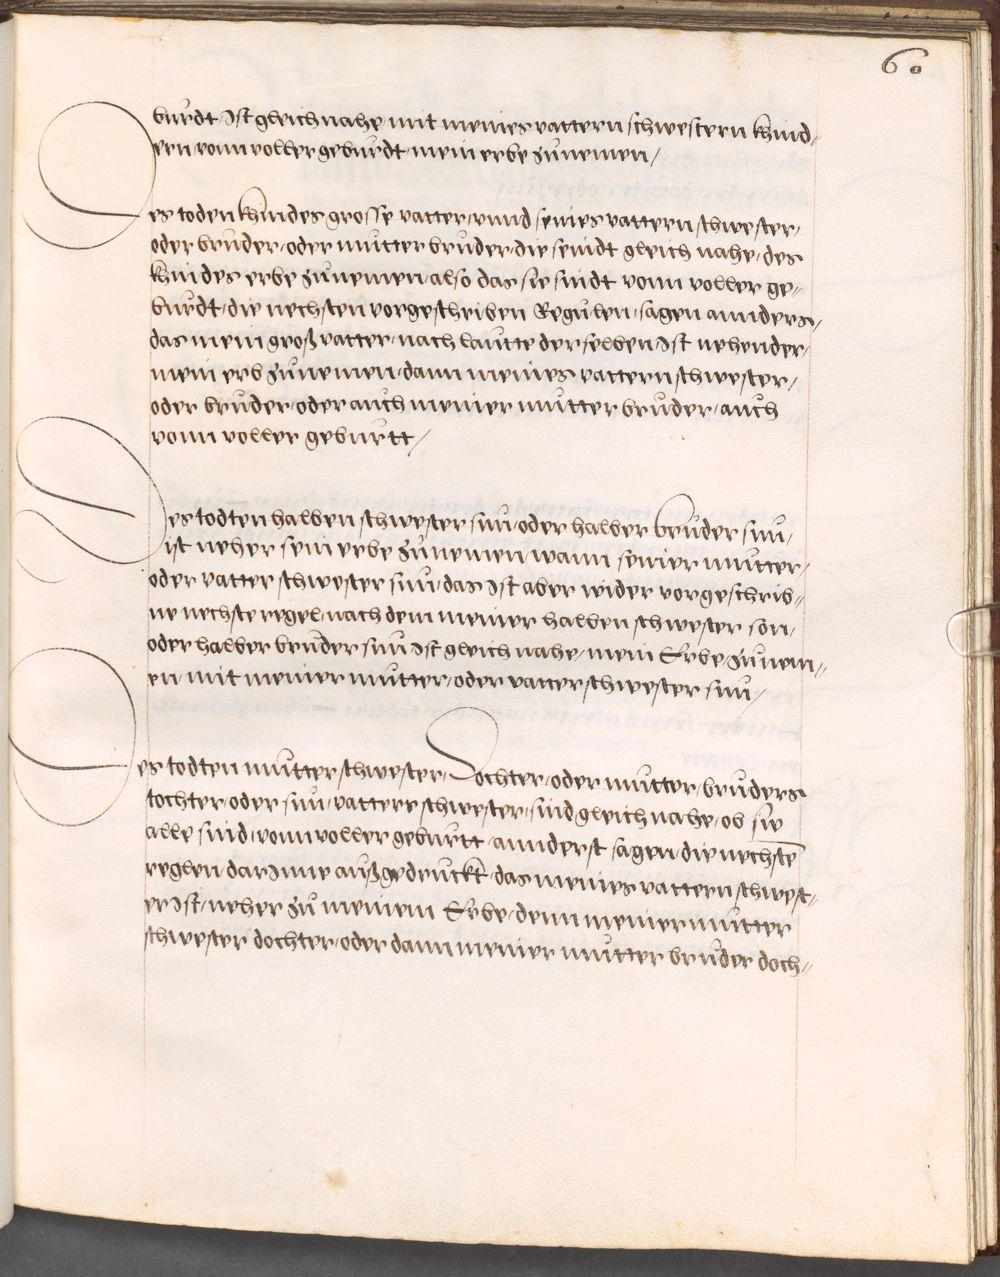 60
burdt, Ist gleich nahe mit meines vattern schwestern khind,,
ern, vonn voller geburdt, mein erbe zunemen,
Des toden khindes grosse vatter, vnnd seines vattern schwester,
oder bruder, oder mutter bruder, die seindt gleich nahe, des
khindes erbe zunemen, also das sie sindt vonn voller ge,,
burdt, die nechsten vorgeschriben Regulen, sagen annders,
das mein groß vatter, nach lautte derselben Ist nehender,
mein erb zunemen, dann meines vattern schwester,
oder bruder, oder auch meiner mutter bruder, auch
vonn voller geburtt,
Des todten halben schwester sun, oder halber bruder sun,
ist neher sein erbe zunemen, wann seiner mutter,
oder vatter schwester sun, das Ist aber wider vorgeschrib,,
ne nechste regel, nach dem meiner halben schwester son,
oder halber bruder sun Ist gleich nahe, mein Erbe, zunem,,
en, mit meiner mutter, oder vatter schwester sun,
Des todten mutter schwester, Dochter, oder mutter, bruders
tochter, oder sun, vattere schwester, sind gleich nahe, ob sie
alle sind, vonn voller geburtt, annderst sagen, die nechste
reglen darInne außgedruckt, das meines vattern schwest,,
er Ist, neher zu meinem Erbe, denn meiner mutter
schwester dochter, oder dann meiner mutter bruder doch,,